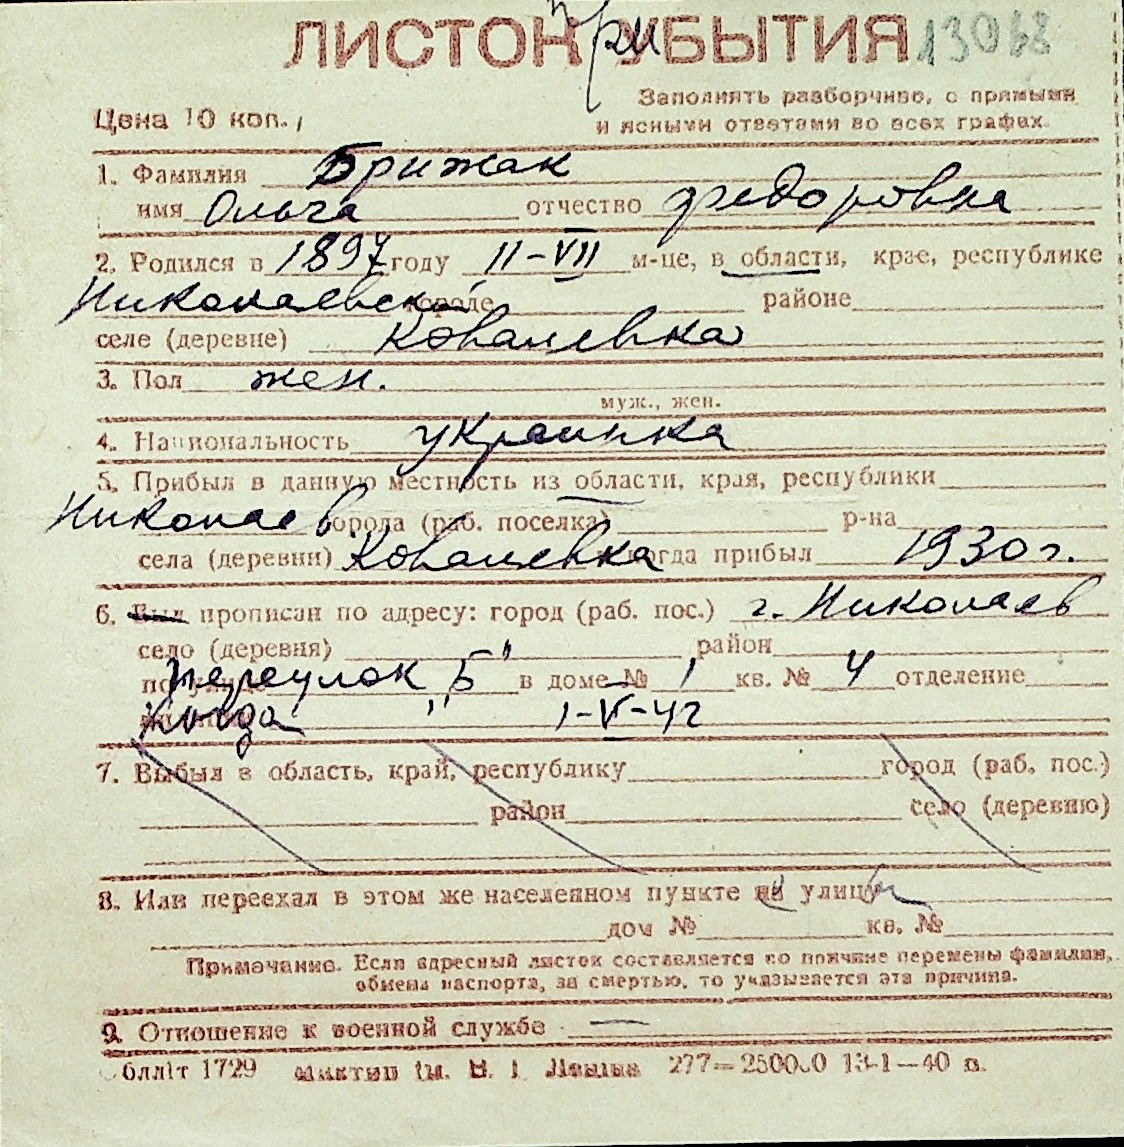 ЛИСТОК при УБЫТИЯ 13068
Заполнять разборчиво, с прямыми
Цена 10 коп.,
и ясными ответами во всех графах.
1. Фамилия Брижак
имя Ольга отчество Федоровна
2. Родился в 1897 году 11-VII м-це, в области, крае, республике
Николаевской городе районе
селе (деревне) Ковалевка
3. Пол жен.
муж., жен.
4. Национальность украинка
5. Прибыл в данную местность из области, края, республики
Николаев города (раб. поселка) р-на
села (деревни) Ковалевка когда прибыл 1930 г.
6. Был прописан по адресу: город (раб. пос.) г. Николаев
село (деревня) район
переулок "Б" в доме № 1 кв. № 4 отделение
Когда " 1-V-42
7. Выбыл в область, край, республику город (раб. пос.)
район село (деревню)
8. Или переехал в этом же населенном пункте из улицы
дом № кв. №
Примечание. Если адресный листок составляется по причине перемены фамилии,
обмена паспорта, за смертью, то указывается эта причина.
9. Отношение к военной службе —
Облліт 1729 277—250000 13-1—40 в.